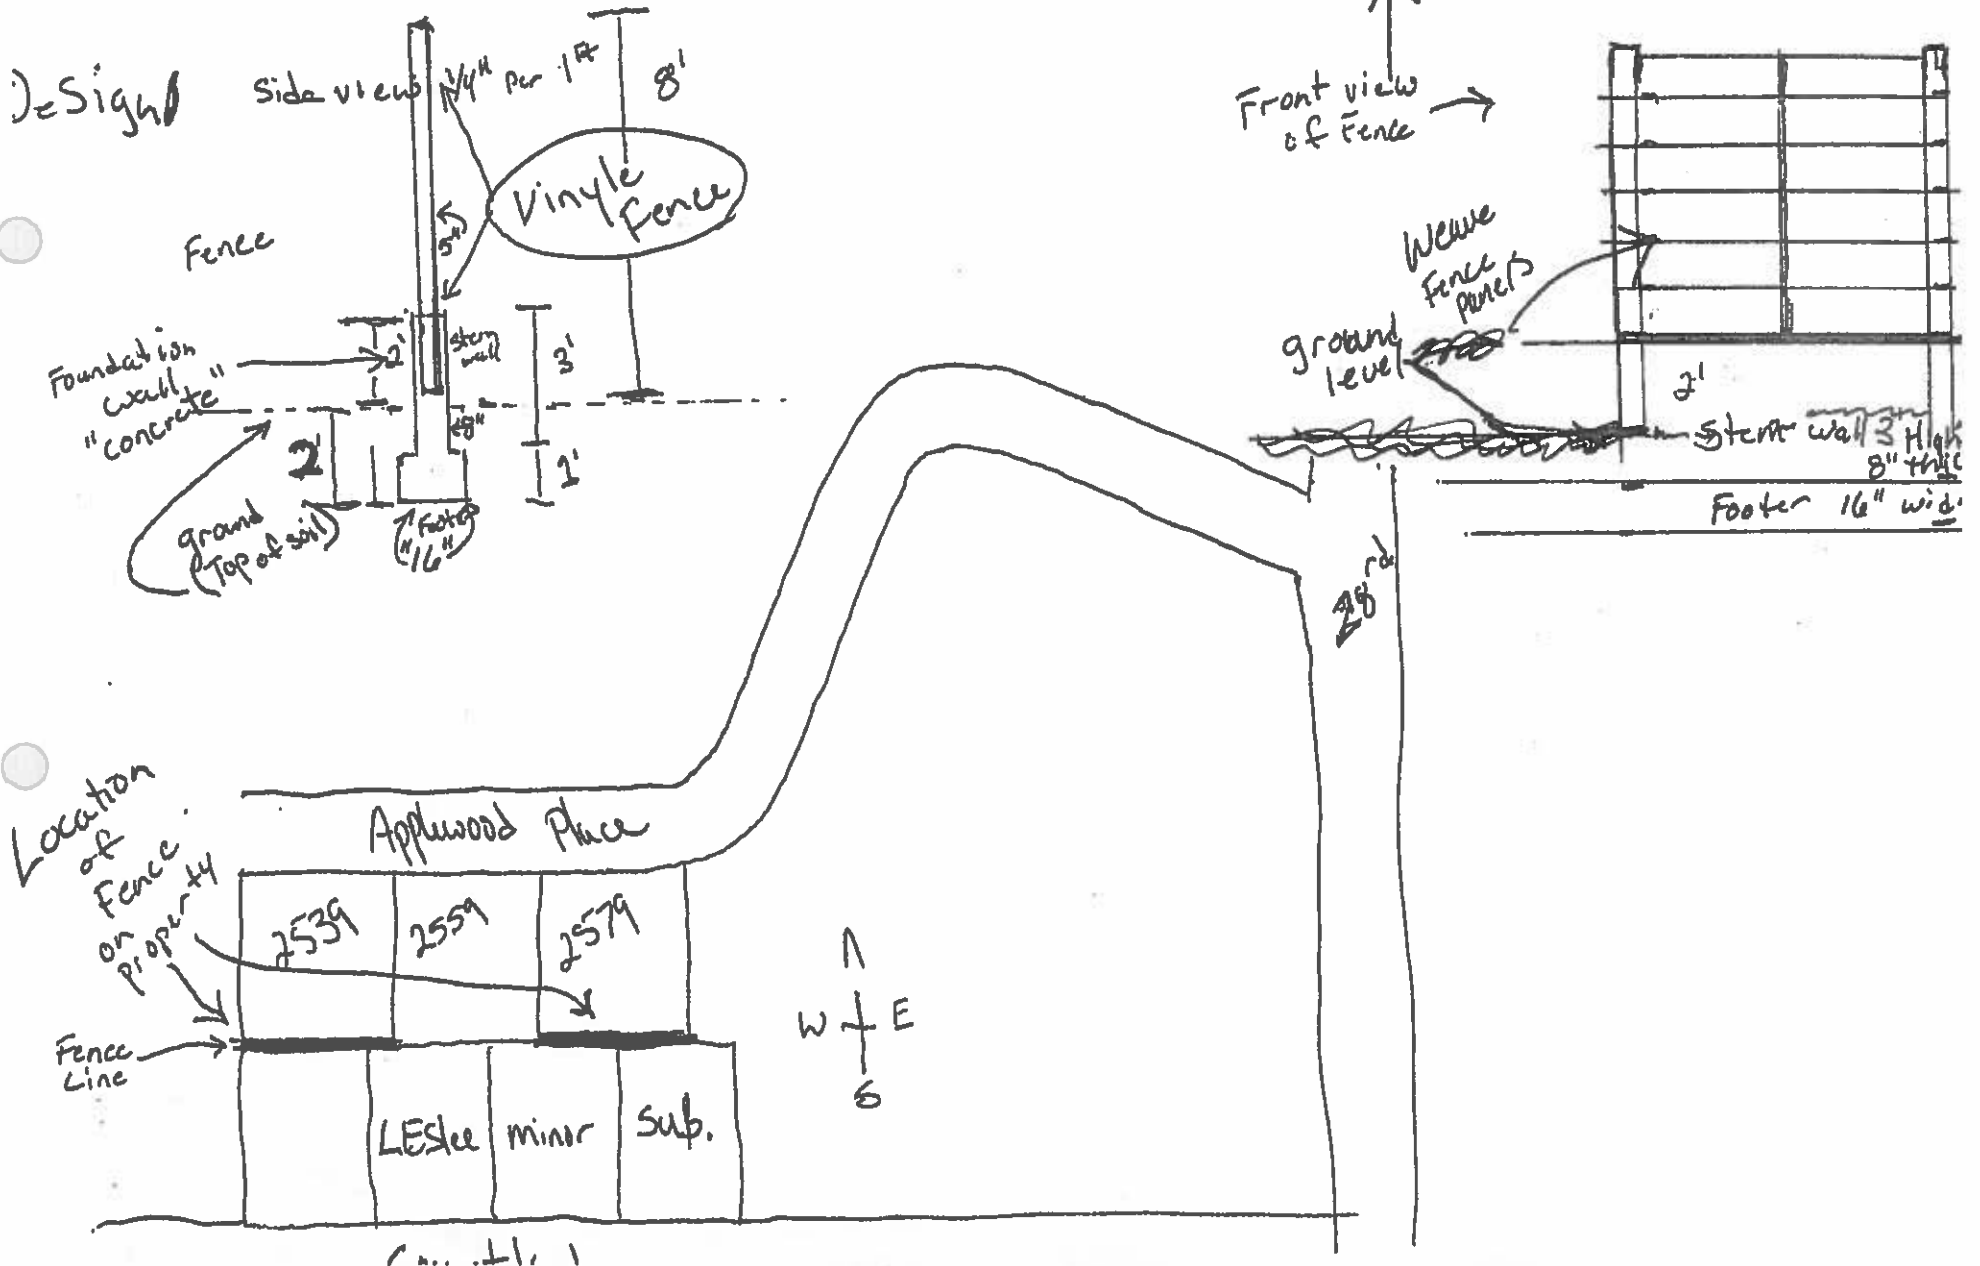 Design
Side view
1/4" per 1 Ft
8'
Vinyle
Fence
Fence
5"
Foundation
wall
"concrete"
2'
Stem
wall
3'
8"
2'
1'
ground
(Top of soil)
Footer
"16"
Front view
of Fence
Weave
Fence
panels
ground
level
2'
Stem wall 3' High
8" thic
Footer 16" wid
28 rd
Location
of
Fence
on
property
Applewood Place
2539
2559
2579
N
W E
S
Fence
Line
LEslee minor Sub.